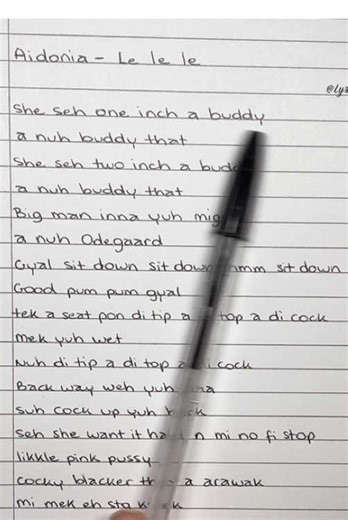 Aidonia - Le le le
@lyr
She seh one inch a buddy
a nuh buddy that
She seh two inch a budd
a nuh buddy that
Big man inna yuh mig
a nuh Odegaard
Gyal sit down sit down hmm sit down
Good pum pum gyal
tek a seat pon di tip a top a di cock
mek yuh wet
Nuh di tip a di top a cock
Back way weh yuh
suh cock up yuh
seh she want it mi no fi stop
likkle pink pussy
cocky blacker a arawak
mi mek eh sta